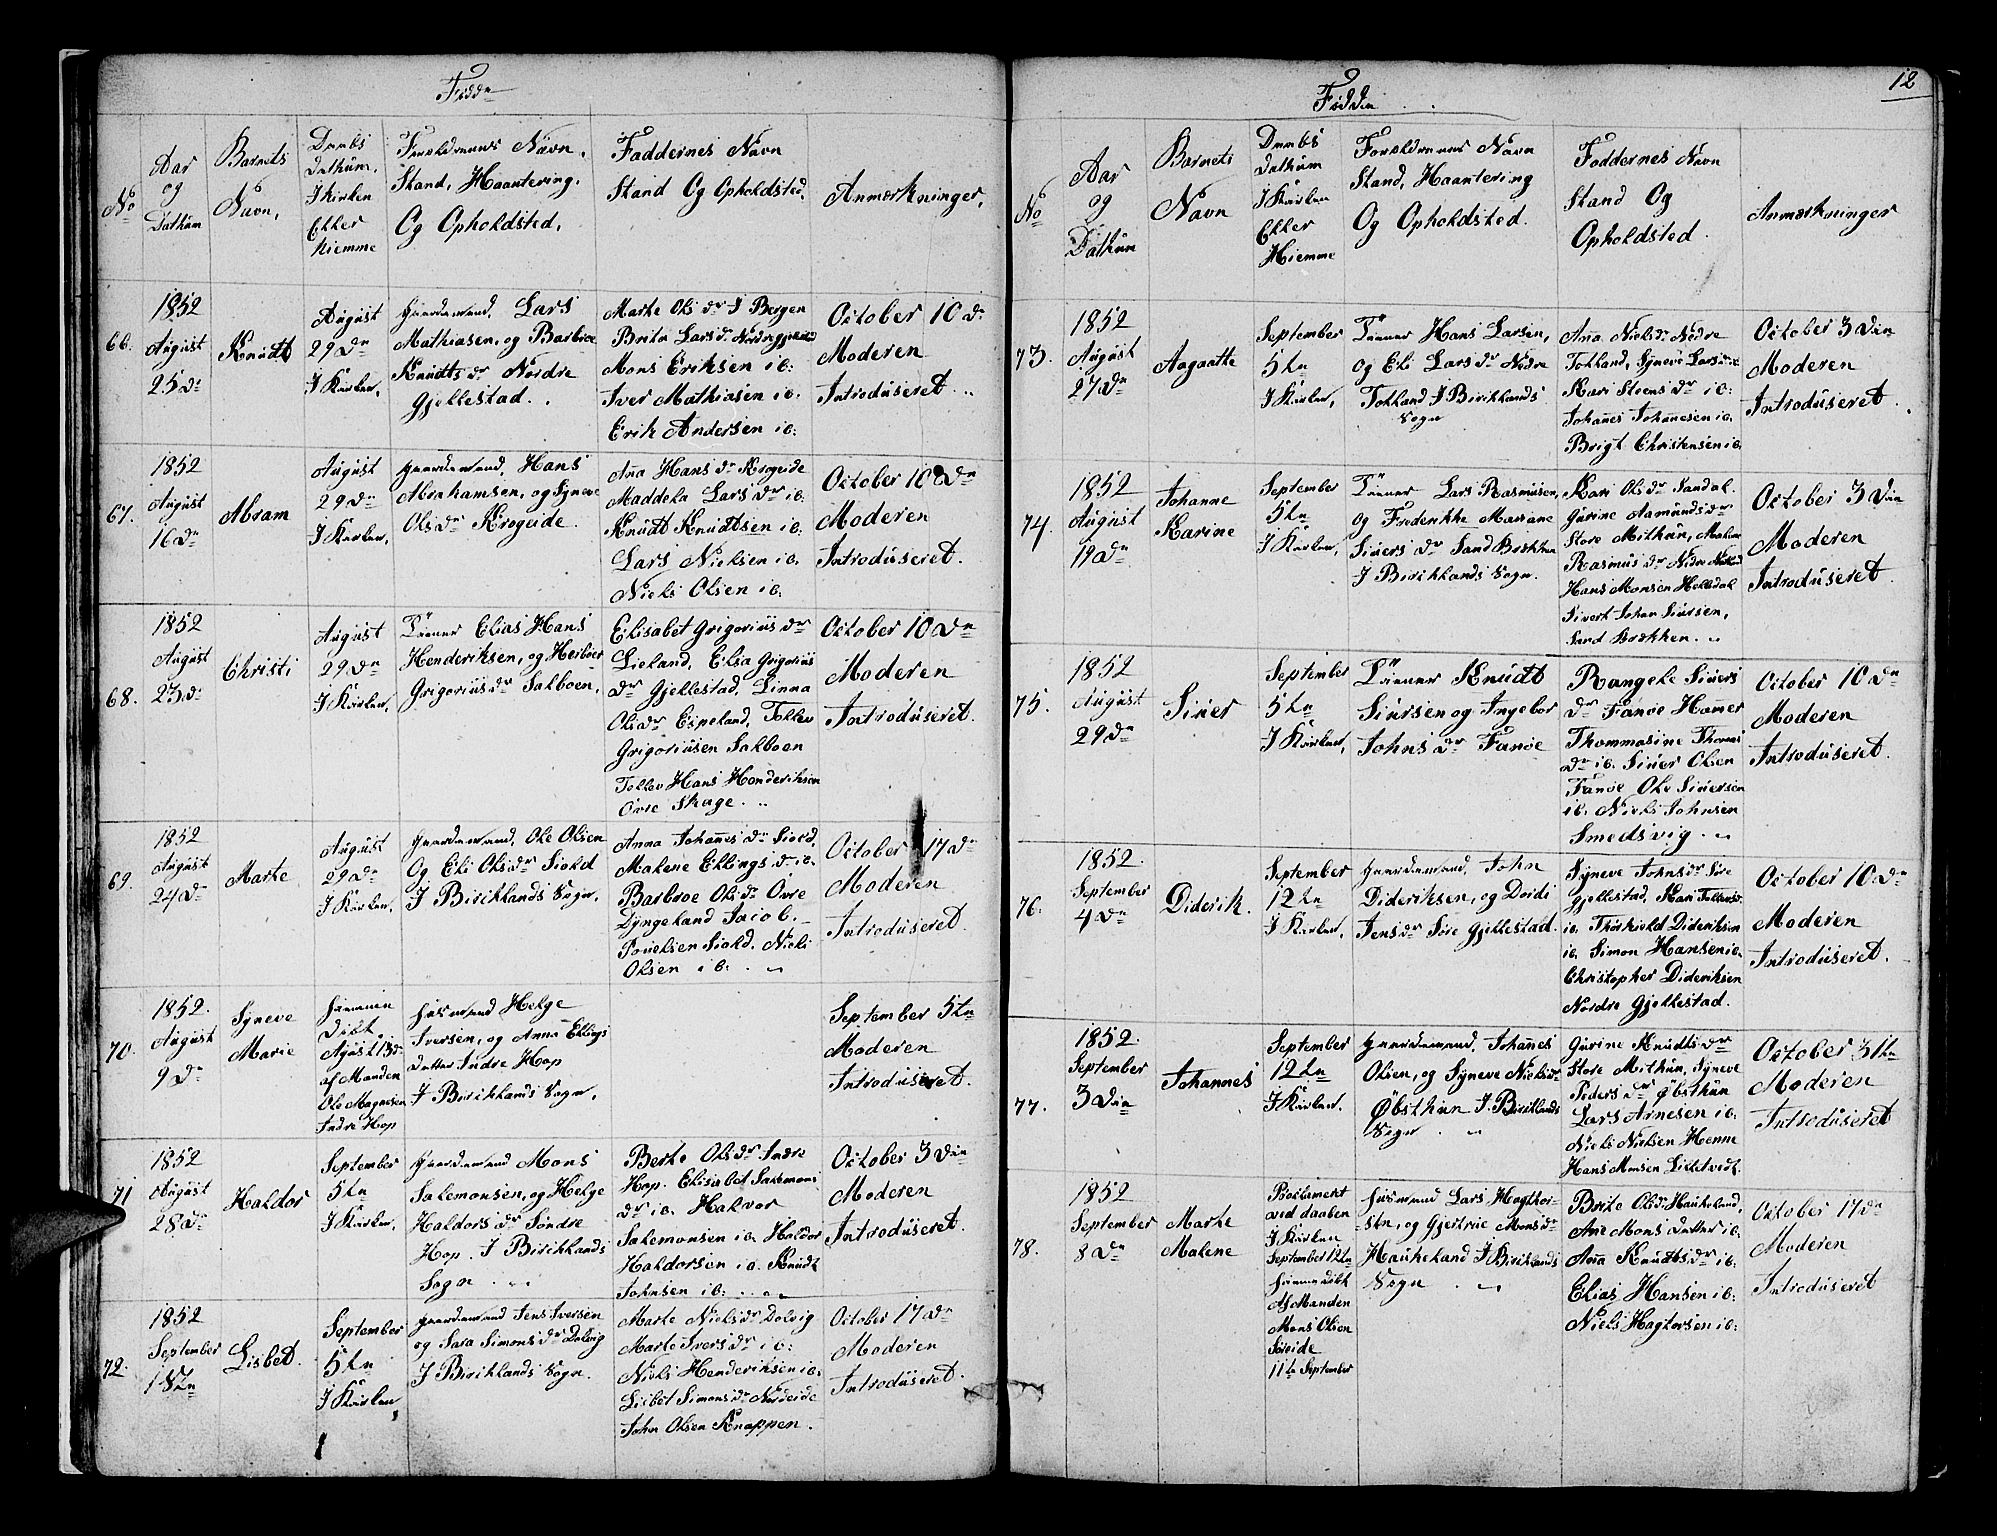 Fødde
No
Aar
og
Dathum
Barnets
Navn,
Daabs
Dathum,
I Kirken
Eller
Hiemme
Forældrenes Navn,
Stand, Haantering,
Og Opholdsted,
Faddernes Navn
Stand Og Opholdsted,
Anmærkninger,
66.
1852
August
25 de
Knudt
August
29 de
I Kirken,
Gaardmand, Lars
Mathiasen, og Barbroe
Knudts dr Nordre
Gjellestad.
Marte Ols dr I Bergen
Brita Lars dr Nordregjellestad
Mons Eriksen ib:
Iver Mathiasen ib.
Erik Andersen ib:
October 10 de
Moderen
Introduseret.
67.
1852
August
16 de
Abram
August
29 de
I Kirken,
Gaardmand, Hans
Abrahamsen, og Syneve
Ols dr Krogeide.
Ana Hans dr Krogeide
Maddela Lars dr ib.
Knudt Knudtsen ib:
Lars Nielsen ib.
Niels Olsen ib:
October 10 de
Moderen
Introduseret.
68.
1852
August
23 de
Christi
August
29 de
I Kirken,
Elias Hans
Henderiksen, og Herborr
Grigorius dr Salboen,
Elisabet Grigorius dr
Lieland, Elsa Grigorius
dr Gjellestad, Linna
Ols dr Espeland, Tollev
Grigoriusen Salboen
Tollev Hans Henderiksen
Øvre Skage.
October 10 de
Moderen
Introduseret.
69.
1852
August
24 de
Marte
August
29 de
I Kirken,
Gaardmand, Ole Olsen
Og Eli Ols dr Siold
I Birkelands Sogn,
Anna Johannes dr Siold,
Malene Ellings dr ib.
Barbroe Ols dr Øvre
Lyngeland Jacob
Pouelsen Siold. Niels
Olsen ib:
October 17 de
Moderen
Introduseret.
70.
1852.
August
9 de
Syneve
Marie
Hiemme
Døbt
Agust 13 de
af Manden
Ole Magnesen
Indre Hop
Husmand Helge
Iversen, og Anna Ellings
datter Indre Hop
I Birkelands Sogn,
September 5 te
Moderen
Introduseret.
71
1852
August
28 de
Haldor
September
5 te
I Kirken,
Gaardmand Mons
Salemonsen, og Helge
Haldors dr Søndre
Hop. I Birkelands
Sogn
Berte Ols dr Indre
Hop. Elisabet Salemons
dr ib. Halvor
Salemonsen ib. Haldor
Haldorsen ib. Knudt
Johnsen ib:
October 3 die
Moderen
Introduseret.
72.
1852
September
1 ste
Lisbet.
September
5 te
I Kirken,
Gaardmand Jens Iversen
og Sara Simons dr Dolvig
I Birkelands Sogn.
Marte Niels dr Dolvig
Marte Ivers dr ib:
Niels Henderiksen ib:
Lisbet Simons dr Nordeide
John Olsen Knappen.
October 17 de
Moderen
Introduseret.
12
Fødde
No
Aar
og
Dathum
Barnets
Navn
Daabs
Dathum
I Kirken
Eller
Hiemme
Forældrenes Navn
Stand, Haantering
Og Opholdsted.
Faddernes Navn
Stand Og
Opholdsted.
Anmærkninger
73.
1852
August
27 de
Aagaatte
September
5 te
I Kirken,
Hans Larsen,
og Eli Lars dr Nedre
Tokland I Birkelands
Sogn
Ana Niels dr Nedre
Tokland, Syneve Lars dr ib
Kari Steens dr ib:
Johannes Johannesen ib:
Brigt Christensen ib.
October 3 die
Moderen
Introduseret.
74.
1852
August
19 de
Johanne
Karine
September
5 te
I Kirken,
Lars Rasmusen,
og Frederikke Mariane
Siuers dr Sand Brekken
I Birkelands Sogn.
Kari Ols dr Sandal.
Gurine Aamunds dr
Store Mithun,
Rasmus dr Nedre
Hans Monsen Helldal
Sivert Johan Siursen,
Sand Brekken.
October 3 die
Moderen
Introduseret.
75.
1852
August
29 de
Siuer
September
5 te
I Kirken,
Knudt
Siursen og Ingebor
Johns dr Fanøe
Rangele Siuers
dr Fanøe Hamer
Thommasine Thomas
dr ib. Siuer Olsen
Fanøe Ole Siuersen
ib. Niels Johnsen
Smedsvig.
October 10 de
Moderen
Introduseret.
76.
1852.
September
4 de
Diderik.
September
12 te
I Kirken,
Gaardmand, John
Dideriksen, og Dordi
Jens dr Søre Gjellestad.
Syneve Johns dr Søre
Gjellestad, Kari Tollevs dr
ib. Thorkield Dideriksen
ib. Simon Hansen ib.
Christopher Dideriksen
Nordre Gjellestad.
October 10 de
Moderen
Introduseret.
77.
1852.
September
3 die
Johannes
September
12 te
I Kirken.
Gaardmand, Johannes
Olsen, og Syneve Niels dr
Øbsthun I Birkelands
Sogn
Gurine Knudts dr
Store Mithun, Syneve
Peders dr Øbsthun
Lars Arnesen ib:
Niels Nielsen Henne
Hans Monsen Liltetvedt.
October 31 te
Moderen
Introduseret
78.
1852
September
8 de
Marte
Malene
ved daaben
I Kirken
September 12 te
Hiemme Døbt
Af Manden
Mons Olsen
Søreide
11 te September
Husmand Lars Hagthor-
-sen, og Gjertrue Mons dr
Haukeland I Birkelands
Sogn
Brite Ols dr Haukeland,
Ane Mons datter ib:
Anna Knudts dr ib:
Elias Hansen ib:
Niels Hagtorsen ib:
October 17 de
Moderen
Introduseret